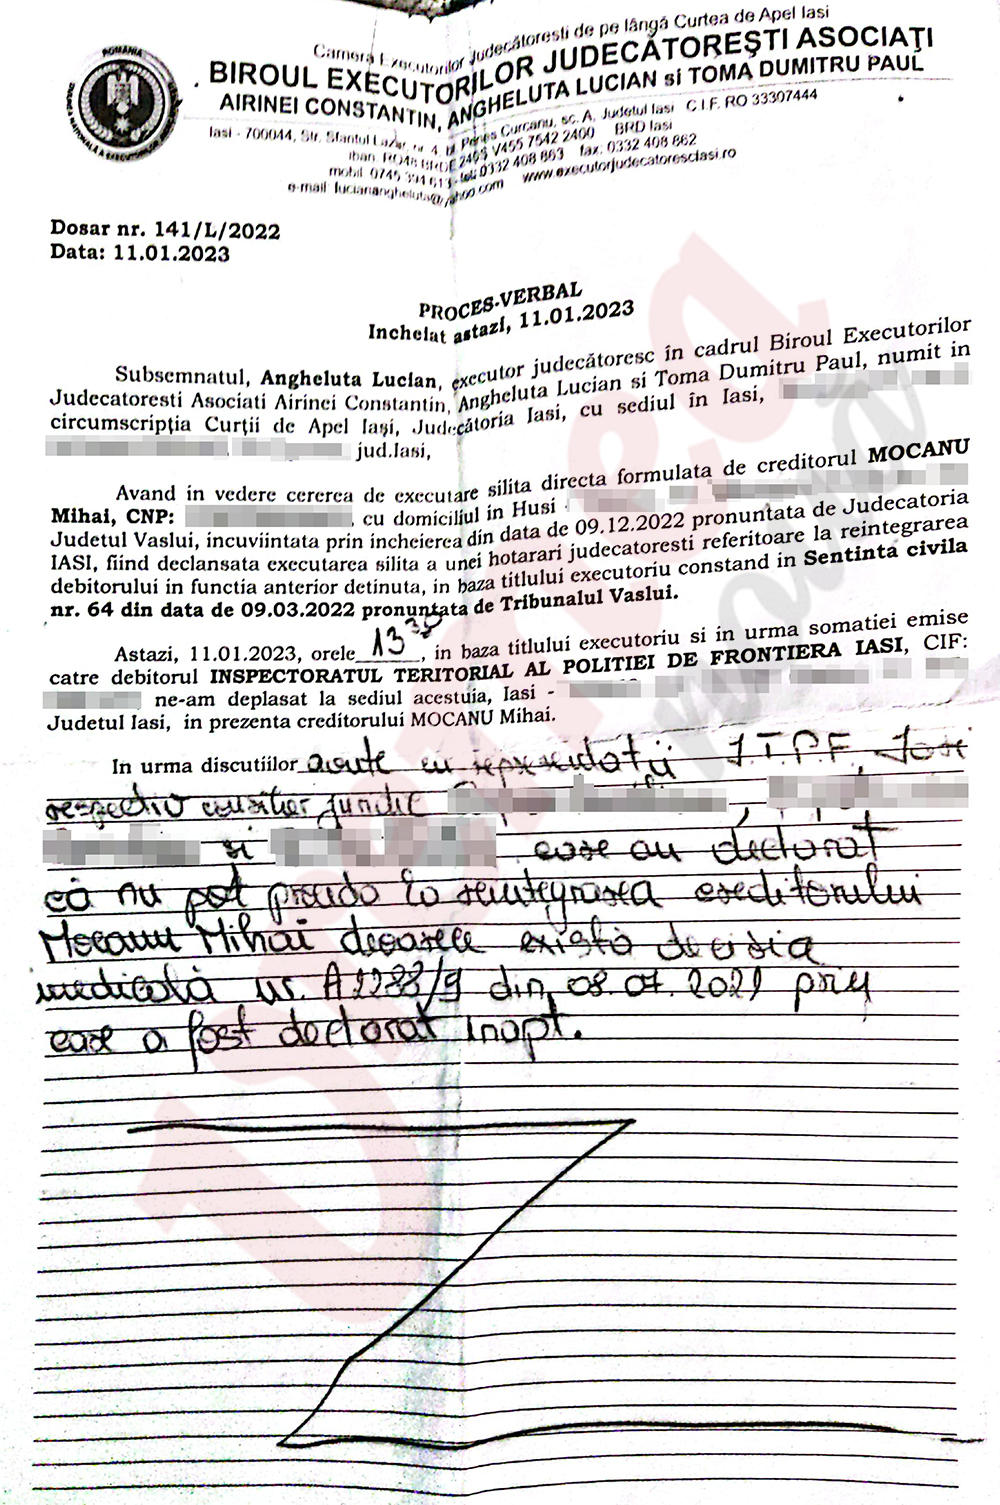 Camera Executorilor Judecătoresti de pe lângă Curtea de Apel Iasi
BIROUL EXECUTORILOR JUDECĂTOREŞTI ASOCIAŢI
AIRINEI CONSTANTIN, ANGHELUTA LUCIAN si TOMA DUMITRU PAUL
Iasi - 700044, Str. Sfantul Lazar, nr. 4, bl. Penes Curcanu, sc. A, Judetul Iasi C.I.F. RO 33307444
iban: BRDE 240S V455 7542 2400 BRD Iasi
mobil: 0745 394 613 - tel: 0332 408 863 fax: 0332 408 862
e-mail: luciananghelută@yahoo.com www.executorjudecatoresciasi.ro
ROMÂNIA
Dosar nr. 141/L/2022
Data: 11.01.2023
PROCES-VERBAL
Incheiat astazi, 11.01.2023
Subsemnatul, Angheluta Lucian, executor judecătoresc în cadrul Biroul Executorilor
Judecatoresti Asociati Airinei Constantin, Angheluta Lucian si Toma Dumitru Paul, numit in
circumscripţia Curţii de Apel Iaşi, Judecătoria Iasi, cu sediul în Iasi,
jud.Iasi,
Avand in vedere cererea de executare silita directa formulata de creditorul MOCANU
Mihai, CNP: , cu domiciliul in Husi -
Judetul Vaslui, incuviintata prin incheierea din data de 09.12.2022 pronuntata de Judecatoria
IASI, fiind declansata executarea silita a unei hotarari judecatoresti referitoare la reintegrarea
debitorului in functia anterior detinuta, in baza titlului executoriu constand in Sentinta civila
nr. 64 din data de 09.03.2022 pronuntata de Tribunalul Vaslui.
Astazi, 11.01.2023, orele 13 30, in baza titlului executoriu si in urma somatiei emise
catre debitorul INSPECTORATUL TERITORIAL AL POLITIEI DE FRONTIERA IASI, CIF:
ne-am deplasat la sediul acestuia, Iasi -
Judetul Iasi, in prezenta creditorului MOCANU Mihai.
In urma discutiilor avute cu reprezentatii I.T.P.F. Iasi
respectiv consilier juridic
si care au declarat
că nu pot proceda la reintegrarea creditorului
Mocanu Mihai deoarece există decizia
medicală nr. A2288/9 din 08.07.2021 prin
care a fost declarat inapt.
Vremea
nouă